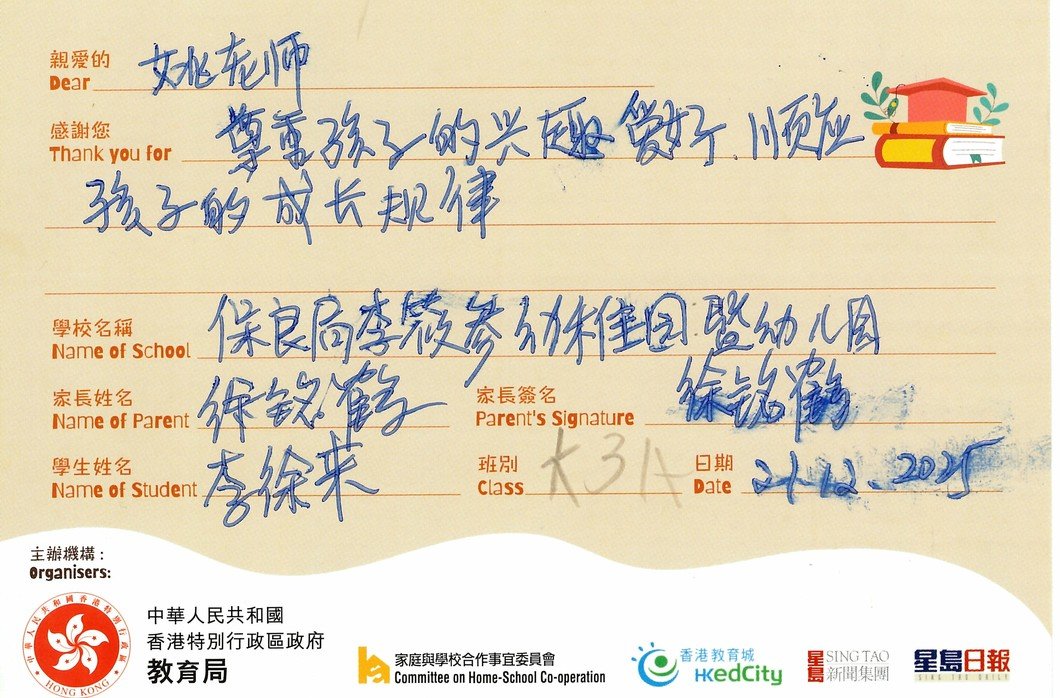 親愛的 姚老师
Dear
感謝您 尊重孩子的兴趣爱好、顺应
Thank you for
孩子的成长规律
學校名稱 保良局李筱参幼稚园暨幼儿园
Name of School
家長姓名 徐铭鹤
Name of Parent
家長簽名 徐铭鹤
Parent's Signature
學生姓名 李徐来
Name of Student
班別 K3A
Class
日期 21.12.2025
Date
主辦機構：
Organisers:
中華人民共和國香港特別行政區政府
HONG KONG
中華人民共和國
香港特別行政區政府
教育局
家庭與學校合作事宜委員會
Committee on Home-School Co-operation
香港教育城
HKedCity
星島 SING TAO
新聞集團
星島日報
SING TAO DAILY